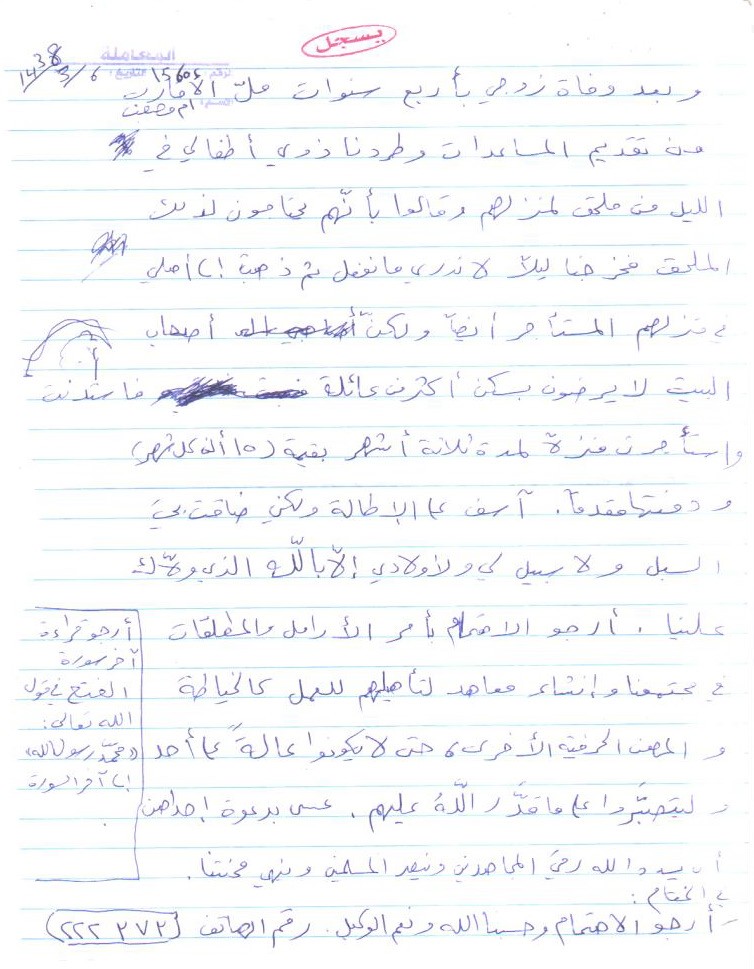 يسجل
المعاملة
رقم: 15605 التاريخ:
1438/3/6
وبعد وفاة زوجي بأربع سنوات ملّ الأقارب
من تقديم المساعدات وطردنا ذوي أطفالي في
الليل من ملحق لمنزلهم وقالوا بأنّهم محتاجون لذلك
الملحق فخرجنا ليلاً لا ندري ما نفعل ثم ذهبت إلى أهلي
في منزلهم المستأجر أيضاً ولكنّ أصحاب
البيت لا يرضون بسكن أكثر من عائلة فاستدنت
واستأجرت منزلاً لمدة ثلاثة أشهر بقيمة (١٥ ألف كل شهر)
ودفعتها مقدماً. آسف على الإطالة ولكني ضاقت بيَ
السبل ولا سبيل لي ولأولادي إلاّ بالله الذي ولاّك
علينا. أرجو الاهتمام بأمر الأرامل والمطلقات
في مجتمعنا وإنشاء معاهد لتأهيلهم للعمل كالخياطة
والمهن الحرفية الأخرى، حتى لا يكونوا عالةً على أحد
وليتصبَّروا على ما قدَّر اللهُ عليهم. عسى بدعوة إحداهن
أن يسدد الله رميَ المجاهدين وينصر المسلمين وينهي محنتنا.
أرجو قراءة
آخر سورة
الفتح في قول
الله تعالى:
«محمّد رسول الله»
إلى آخر السورة
في الختام:
أرجو الاهتمام وحسبنا الله ونعم الوكيل. رقم الهاتف (٢٢٢ ٣٧٢)